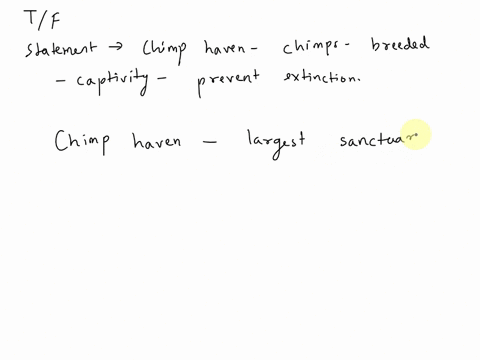 T/F
Statement → Chimp haven - chimps - breeded
- captivity - prevent extinction.
Chimp haven - largest sanctuar